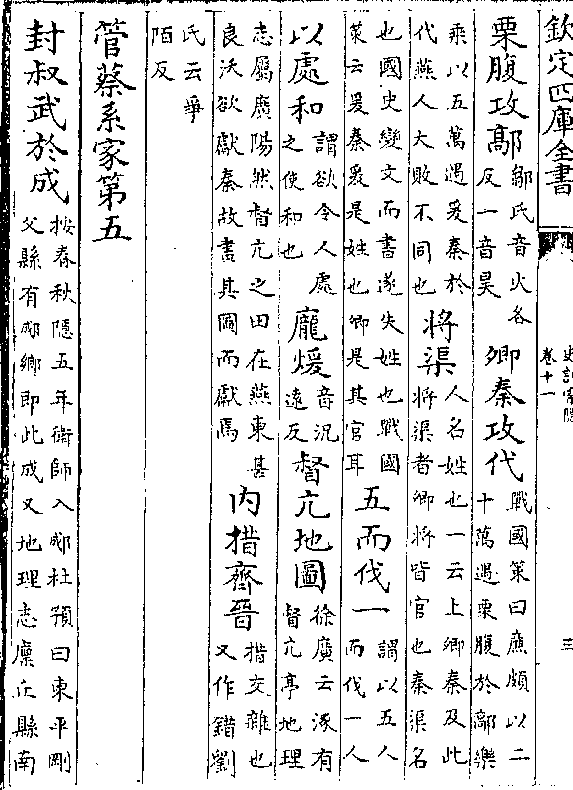 欽定四庫全書
史記索隱
卷十一
三
栗腹攻鄗鄒氏音火各反一音昊卿秦攻代戰國策曰廉頗以二十萬遇栗腹於鄗樂
乘以五萬遇爰秦於代燕人大敗不同也將渠人名姓也一云上卿秦及此將渠者卿將皆官也秦渠名
也國史變文而書遂失姓也戰國策云爰秦爰是姓也卿是其官耳五而伐一謂以五人而伐一人
以處和謂欲令人處之使和也龐煖音況遠反督亢地圖徐廣云涿有督亢亭地理
志屬廣陽然督亢之田在燕東甚良沃欲獻秦故畫其圖而獻焉內措齊晉措交雜也又作錯劉
氏云爭陌反
管蔡系家第五
封叔武於成按春秋隱五年衛師入郕杜預曰東平剛父縣有郕鄉即此成又地理志廩丘縣南